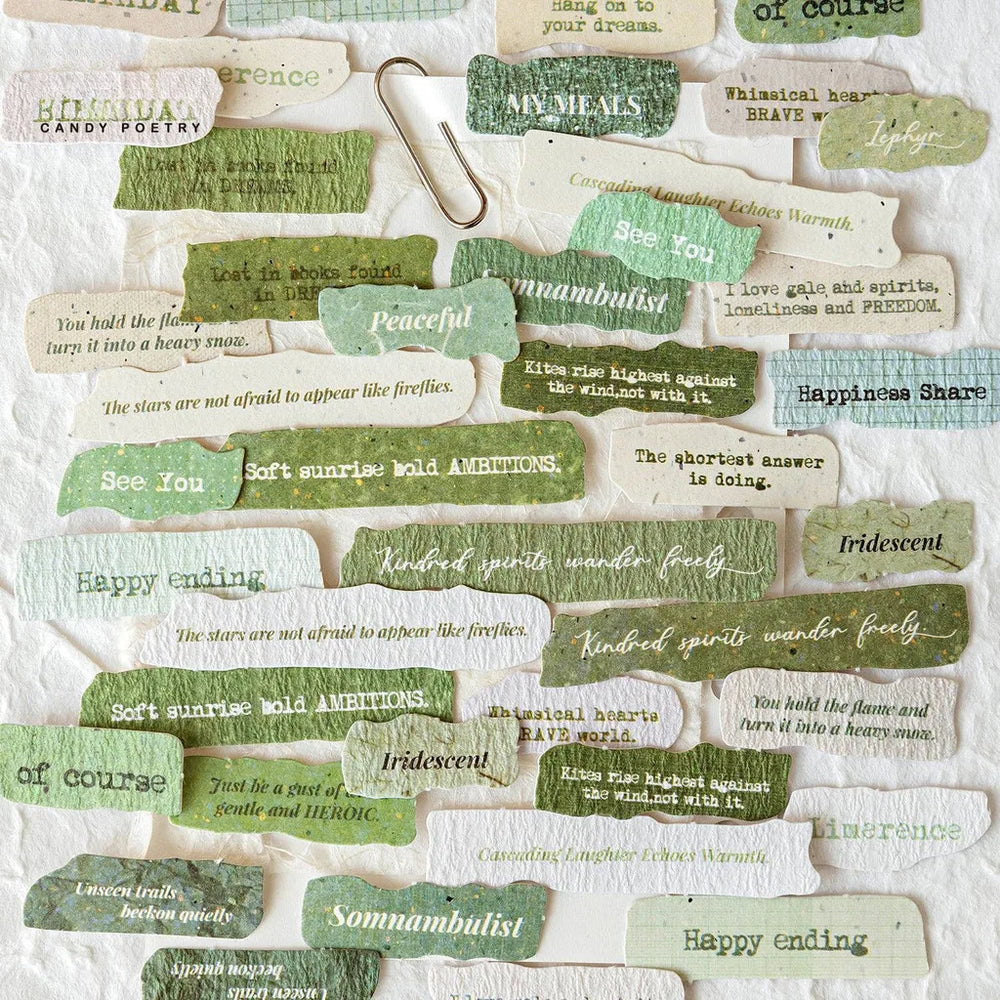 Hang on to
your dreams.
of course
erence
BIRTHDAY
CANDY POETRY
MY MEALS
Whimsical hearts
BRAVE
Zephyr
Lost in books found
in DREAMS.
Cascading Laughter Echoes Warmth.
See You
Lost in books found
in
Somnambulist
I love gale and spirits,
loneliness and FREEDOM.
You hold the
turn it into a heavy snow.
Peaceful
Kites rise highest against
the wind,not with it.
Happiness Share
The stars are not afraid to appear like fireflies.
See You
Soft sunrise bold AMBITIONS.
The shortest answer
is doing.
Iridescent
Happy ending
Kindred spirits wander freely.
The stars are not afraid to appear like fireflies.
Kindred spirits wander freely.
Soft sunrise bold AMBITIONS.
Whimsical hearts
BRAVE world.
You hold the flame and
turn it into a heavy snow.
of course
Iridescent
Just be a gust of
gentle and HEROIC.
Kites rise highest against
the wind,not with it.
Limerence
Cascading Laughter Echoes Warmth.
Unseen trails
beckon quietly
Somnambulist
Happy ending
Unseen trails
beckon quietly